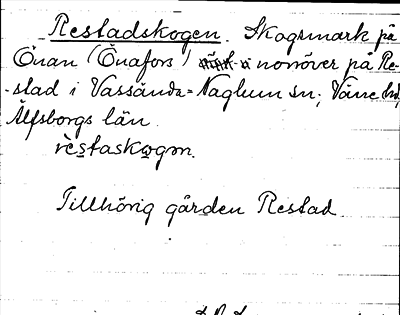 Restadskogen. Skogsmark på
Önan (Önafors) norröver på Re-
-stad i Vassända-Naglum sn; Väne hd,
Älfsborgs län.
rèstaskogon.
Tillhörig gården Restad